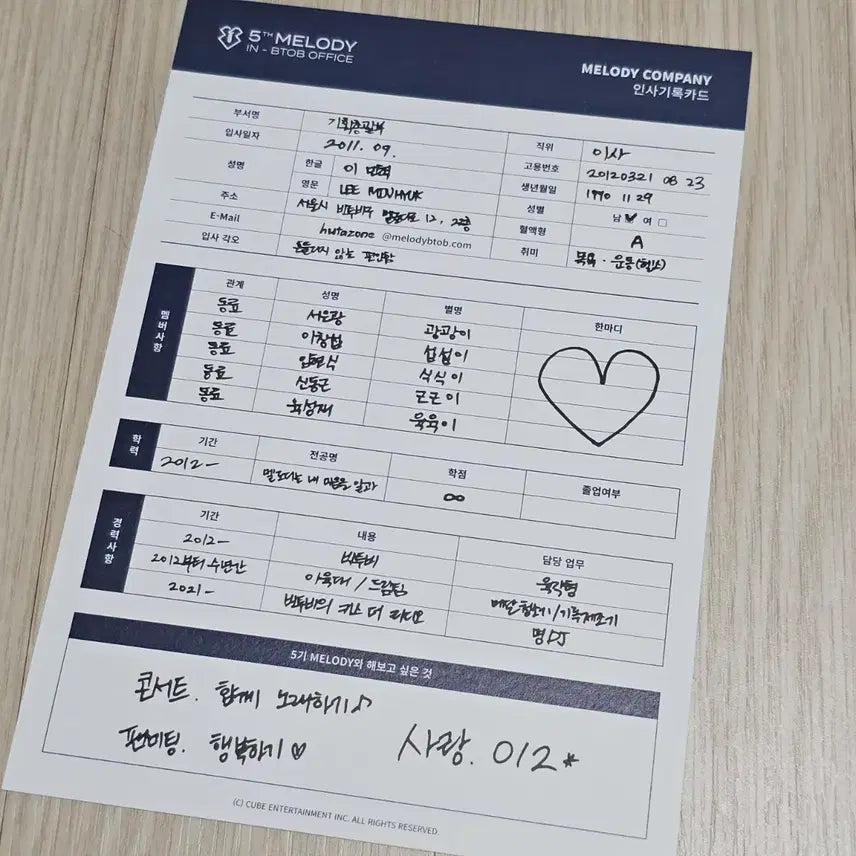 5TH MELODY
IN - BTOB OFFICE
MELODY COMPANY
인사기록카드
부서명 기획총괄부 직위 이사
입사일자 2011. 09. 고용번호 20120321 08 23
성명 한글 이 민혁 생년월일 1990 11 29
영문 LEE MINHYUK 성별 남 여
주소 서울시 비투비구 멜로디로 12, 2층 혈액형 A
E-Mail hutazone @melodybtob.com 취미 목욕 · 운동(헬스)
입사 각오 흔들리지 않는 편안함
멤버사항
관계 성명 별명 한마디
동료 서은광 광광이
동료 이창섭 섭섭이
동료 임현식 식식이
동료 신동근 근근이
동료 육성재 육육이
학력
기간 전공명 학점 졸업여부
2012 - 멜로디는 내 마음을 알까 ∞
경력사항
기간 내용 담당 업무
2012 - 비투비 육각형
2012부터 수년간 아육대 / 드림팀 메달청소기/기록제조기
2021 - 비투비의 키스 더 라디오 명DJ
5기 MELODY와 해보고 싶은 것
콘서트. 함께 노래하기♪
팬미팅. 행복하기♡
사랑. 012*
(C) CUBE ENTERTAINMENT INC. ALL RIGHTS RESERVED.